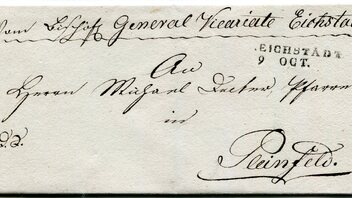 Vom Bischöf General Vicariate Eichstä
EICHSTÄDT
9 OCT.
An
Herrn Michael Decker, Pfarre
in
d.S.
Pleinfeld.